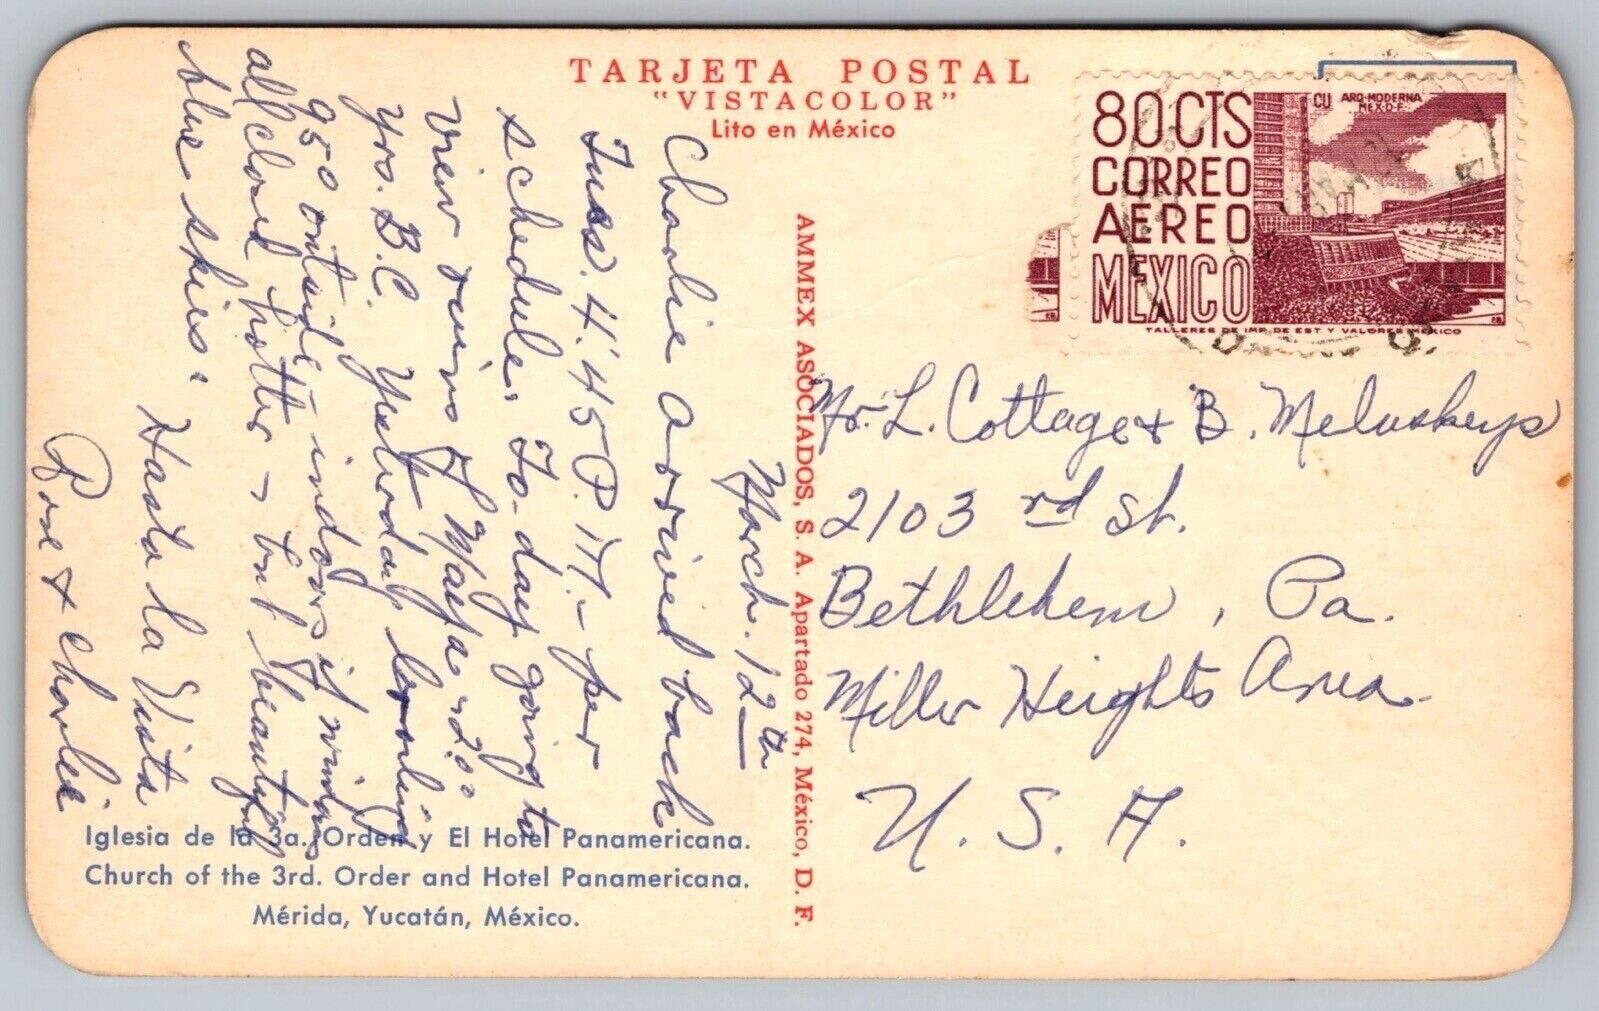 TARJETA POSTAL
"VISTACOLOR"
Lito en México
80 CTS
CORREO
AEREO
MEXICO
CU ARQ-MODERNA
MEX.D.F.
TALLERES DE IMP. DE EST. Y VALORES MEXICO
AMMEX ASOCIADOS, S. A. Apartado 274, México, D. F.
March. 12th
Charlie arrived back
Tues. 4:45 P.M. - per
schedule. To-day going to
View ruins of Mayas 2.00
Yrs. B.C. Yesterday
95° outside - indoors if windows
all closed hotter - but beautiful
blue skies.
Hasta la Vista
Rose & Charlie
Mr. L. Cottage & B. Meluskeys
2103 rd St.
Bethlehem, Pa.
Miller Heights Area.
U. S. A.
Iglesia de la 3a. Orden y El Hotel Panamericana.
Church of the 3rd. Order and Hotel Panamericana.
Mérida, Yucatán, México.